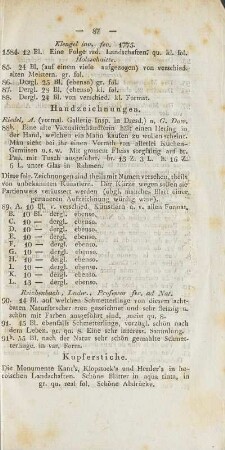 — 87 —
Klengel inv. fec. 1773.
1584. 12 Bl. Eine Folge rad. Landschaften. qu. kl. fol.
Holzschnitte.
85. 24 Bl. (auf einen viele aufgezogen) von verschied-
alten Meistern. gr. fol.
86. 25 Bl. (ebenso) gr. fol.
87. 20 Bl. (ebenso) kl. fol.
88. Bl. dergl. 24 Bl. von verschied. kl. Format.
Handzeichnungen.
Riedel, A. (vormal. Gallerie Insp. in Dresd.) u. G. Dow.
88b. Eine alte Victualienhändlerin hält einen Hering in
der Hand, welchen ein Mann kaufen zu wollen scheint.
Man sieht bei ihr einen Vorrath von allerlei Küchen-
Gemüsen u. s. w. Mit grossem Fleiss sorgfältig auf br.
Pap. mit Tusch ausgeführt. br. 15 Z. 3 L. h. 16 Z.
6 L. unter Glas in Rahmen.
Diese folg. Zeichnungen sind theils mit Namen versehen, theils
von unbekannten Künstlern. Der Kürze wegen sollen sie
Partieweise versteigert werden (obgl. manches Blatt einer
genaueren Aufzeichnung würdig wäre).
89. A. 10 Bl. v. verschied. Künstlern u. v. allen Format.
B. 10 Bl. dergl. ebenso.
C. 10 — dergl. ebenso.
D. 10 — dergl. ebenso.
E. 10 — dergl. ebenso.
F. 10 — dergl. ebenso.
G. 10 — dergl. ebenso.
H. 10 — dergl. ebenso.
I. 10 — dergl. ebenso.
K. 10 — dergl. ebenso.
L. 15 — dergl. ebenso.
Reichenbach, Ludw., Professor fec. ad Nat.
90. 44 Bl. auf welchen Schmetterlinge von diesem acht-
baren Naturforscher treu gezeichnet und sehr fleissig u.
schön mit Farben ausgeführt sind. meist qu. 8.
91. 45 Bl. ebenfalls Schmetterlinge, vorzügl. schön nach
dem Leben. gr. qu. 8. Eine sehr interess. Sammlung.
91b. 35 Bl. nach der Natur sehr schön gemahlte Schmet-
terlinge. in var. Form.
Kupferstiche.
Die Monumente Kant's, Klopstock's und Herder's in he-
roischen Landschaften. Schöne Blätter in aqua tinta, in
gr. qu. real fol. Schöne Abdrücke.